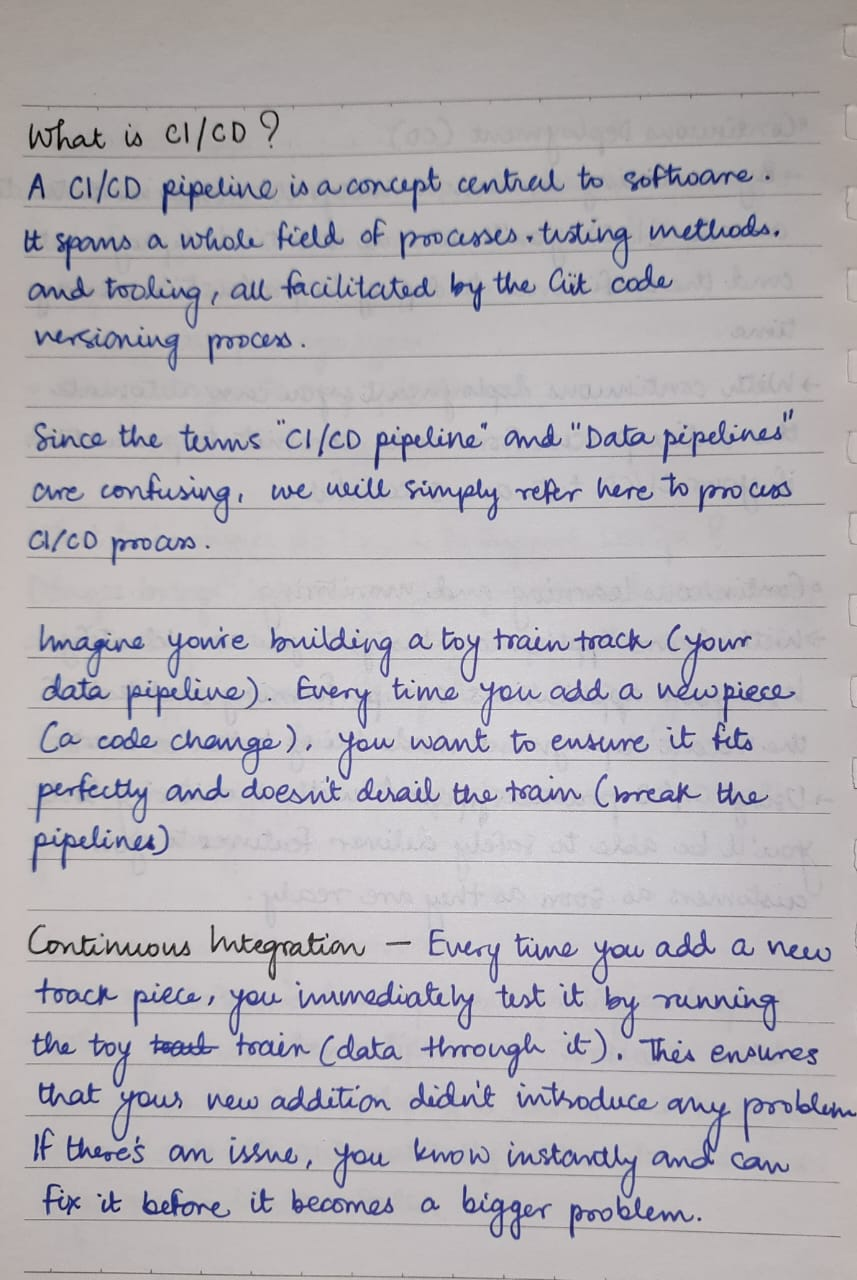 What is CI/CD?
A CI/CD pipeline is a concept central to software.
It spans a whole field of processes, testing methods,
and tooling, all facilitated by the Git code
versioning process.
Since the terms "CI/CD pipeline" and "Data pipelines"
are confusing, we will simply refer here to process
CI/CD process.
Imagine you're building a toy train track (your
data pipeline). Every time you add a new piece
(a code change), you want to ensure it fits
perfectly and doesn't derail the train (break the
pipelines)
Continuous Integration — Every time you add a new
track piece, you immediately test it by running
the toy train (data through it). This ensures
that your new addition didn't introduce any problem
If there's an issue, you know instantly and can
fix it before it becomes a bigger problem.